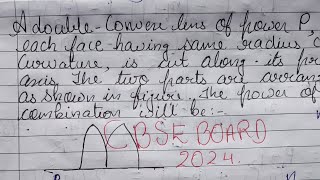 A double-Convex lens of power P,
each face having same radius
curvature, is cut along its pr
axis. The two parts are arran
as shown in figure. The power of
combination will be:-
CBSE BOARD
2024